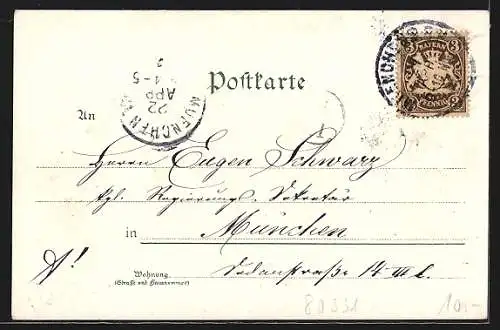 3 BAYERN 3
PFENNIG
Postkarte
MUENCHEN
22
APR
4-5
An
Herrn Eugen Schwarz
kgl. Regierungs-Sekretär
in München
A!
Wohnung
(Straße und Hausnummer)
Sedanstraße 14 III l.
80331
10,-